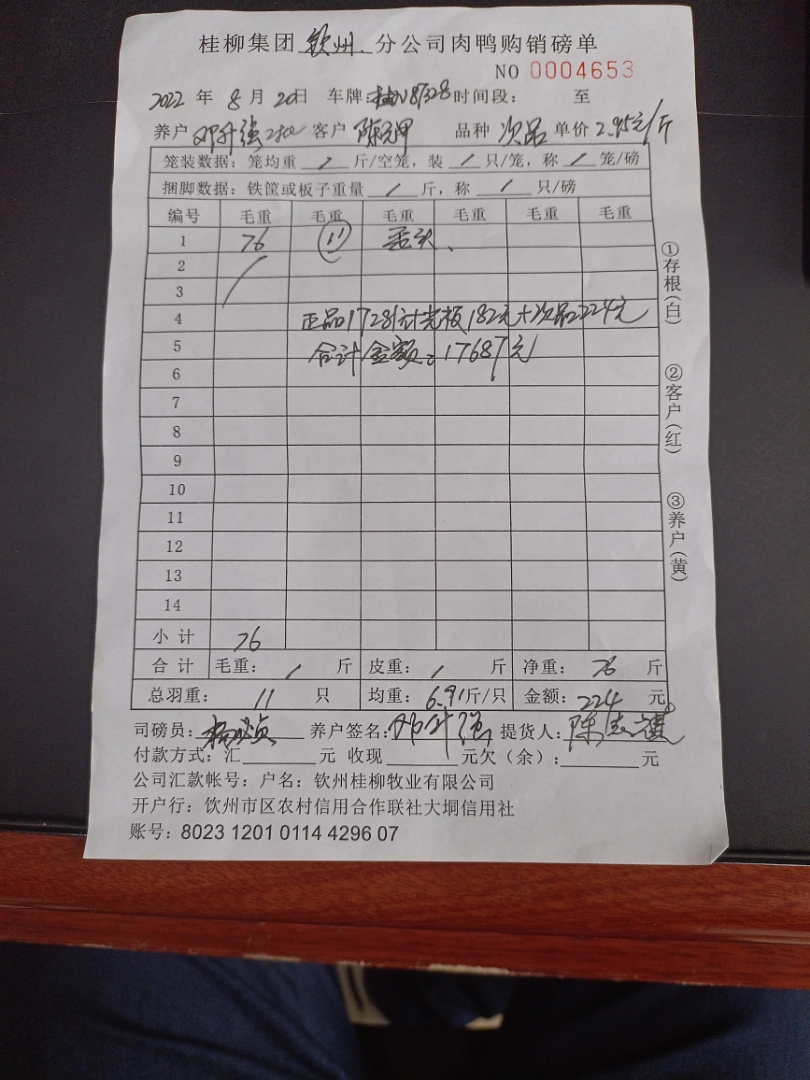 桂柳集团 钦州 分公司肉鸭购销磅单
NO 0004653
2022 年 8 月 20 日 车牌: 时间段: 至
养户 邓升强 客户 品种 次品 单价 2.95元/斤
笼装数据: 笼均重 / 斤/空笼, 装 / 只/笼, 称 / 笼/磅
捆脚数据: 铁筐或板子重量 / 斤, 称 / 只/磅
编号 毛重 毛重 毛重 毛重 毛重 毛重
1 76 11
2
3
4 正品17281 182元+次品224元
5 合计金额:17687元
6
7
8
9
10
11
12
13
14
小计 76
合计 毛重: / 斤 皮重: / 斤 净重: 76 斤
总羽重: 11 只 均重: 6.91斤/只 金额: 224 元
司磅员: 养户签名: 邓升强 提货人:
付款方式: 汇 元 收现 元欠(余): 元
公司汇款帐号: 户名: 钦州桂柳牧业有限公司
开户行: 钦州市区农村信用合作联社大垌信用社
账号: 8023 1201 0114 4296 07
①存根(白)
②客户(红)
③养户(黄)